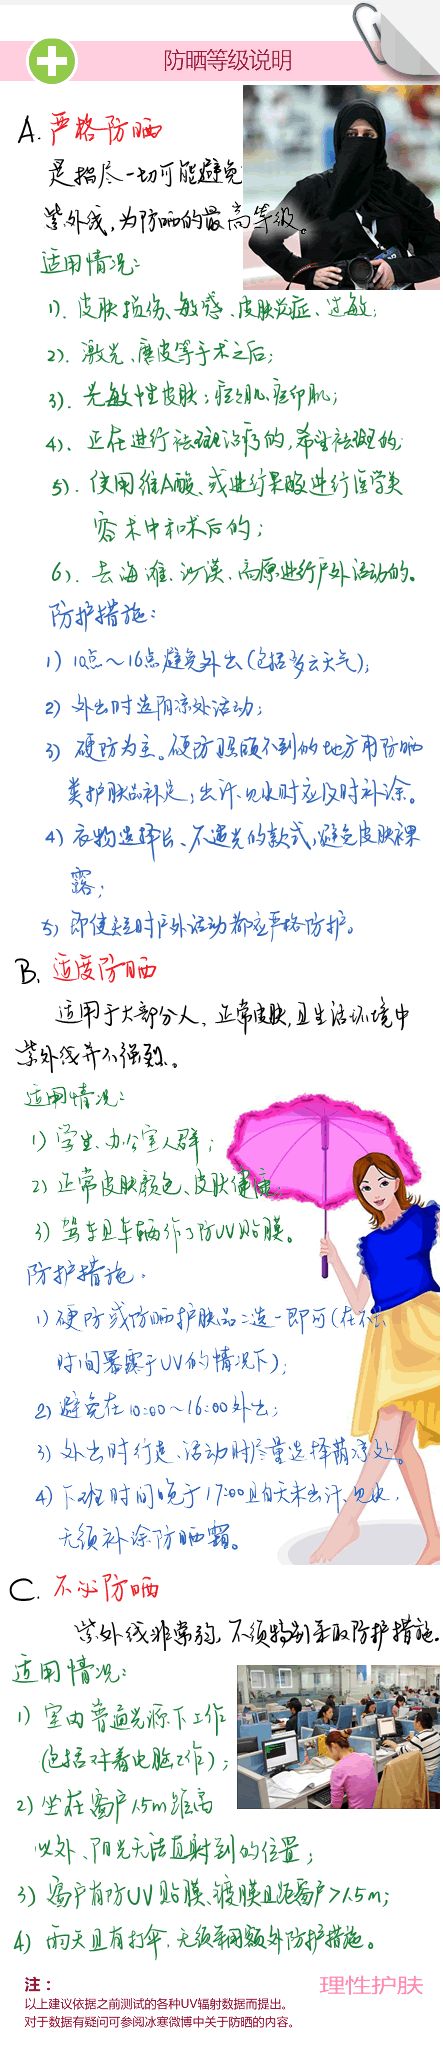 防晒等级说明
A. 严格防晒
是指尽一切可能避免
紫外线，为防晒的最高等级。
适用情况：
1). 皮肤损伤、敏感、皮肤炎症、过敏；
2). 激光、磨皮等手术之后；
3). 光敏性皮肤；痘肌、痘印肌；
4). 正在进行祛斑治疗的，希望祛斑的；
5). 使用维A酸、或进行果酸进行医学美
容术中和术后的；
6). 去海滩、沙漠、高原进行户外活动的。
防护措施：
1) 10点～16点避免外出（包括多云天气）；
2) 外出时选阴凉处活动；
3) 硬防为主。硬防照顾不到的地方用防晒
类护肤品补足；出汗、见水时应及时补涂。
4) 衣物选择长、不透光的款式，避免皮肤裸
露；
5) 即使短时户外活动都应严格防护。
B. 适度防晒
适用于大部分人，正常皮肤，且生活环境中
紫外线并不强烈。
适用情况：
1) 学生、办公室人群；
2) 正常皮肤颜色、皮肤健康；
3) 驾车且车辆作了防UV贴膜。
防护措施：
1) 硬防或防晒护肤品二选一即可（在不长
时间暴露于UV的情况下）；
2) 避免在10:00～16:00外出；
3) 外出时行走、活动时尽量选择荫凉处。
4) 下班时间晚于17:00且白天未出汗、见水，
无须补涂防晒霜。
C. 不必防晒
紫外线非常弱，不须特别采取防护措施。
适用情况：
1) 室内普通光源下工作
（包括对着电脑工作）；
2) 坐在窗户1.5m距离
以外、阳光无法直射到的位置；
3) 窗户有防UV贴膜、镀膜且距窗户>1.5m；
4) 雨天且有打伞，无须采用额外防护措施。
注：
以上建议依据之前测试的各种UV辐射数据而提出。
对于数据有疑问可参阅冰寒微博中关于防晒的内容。
理性护肤